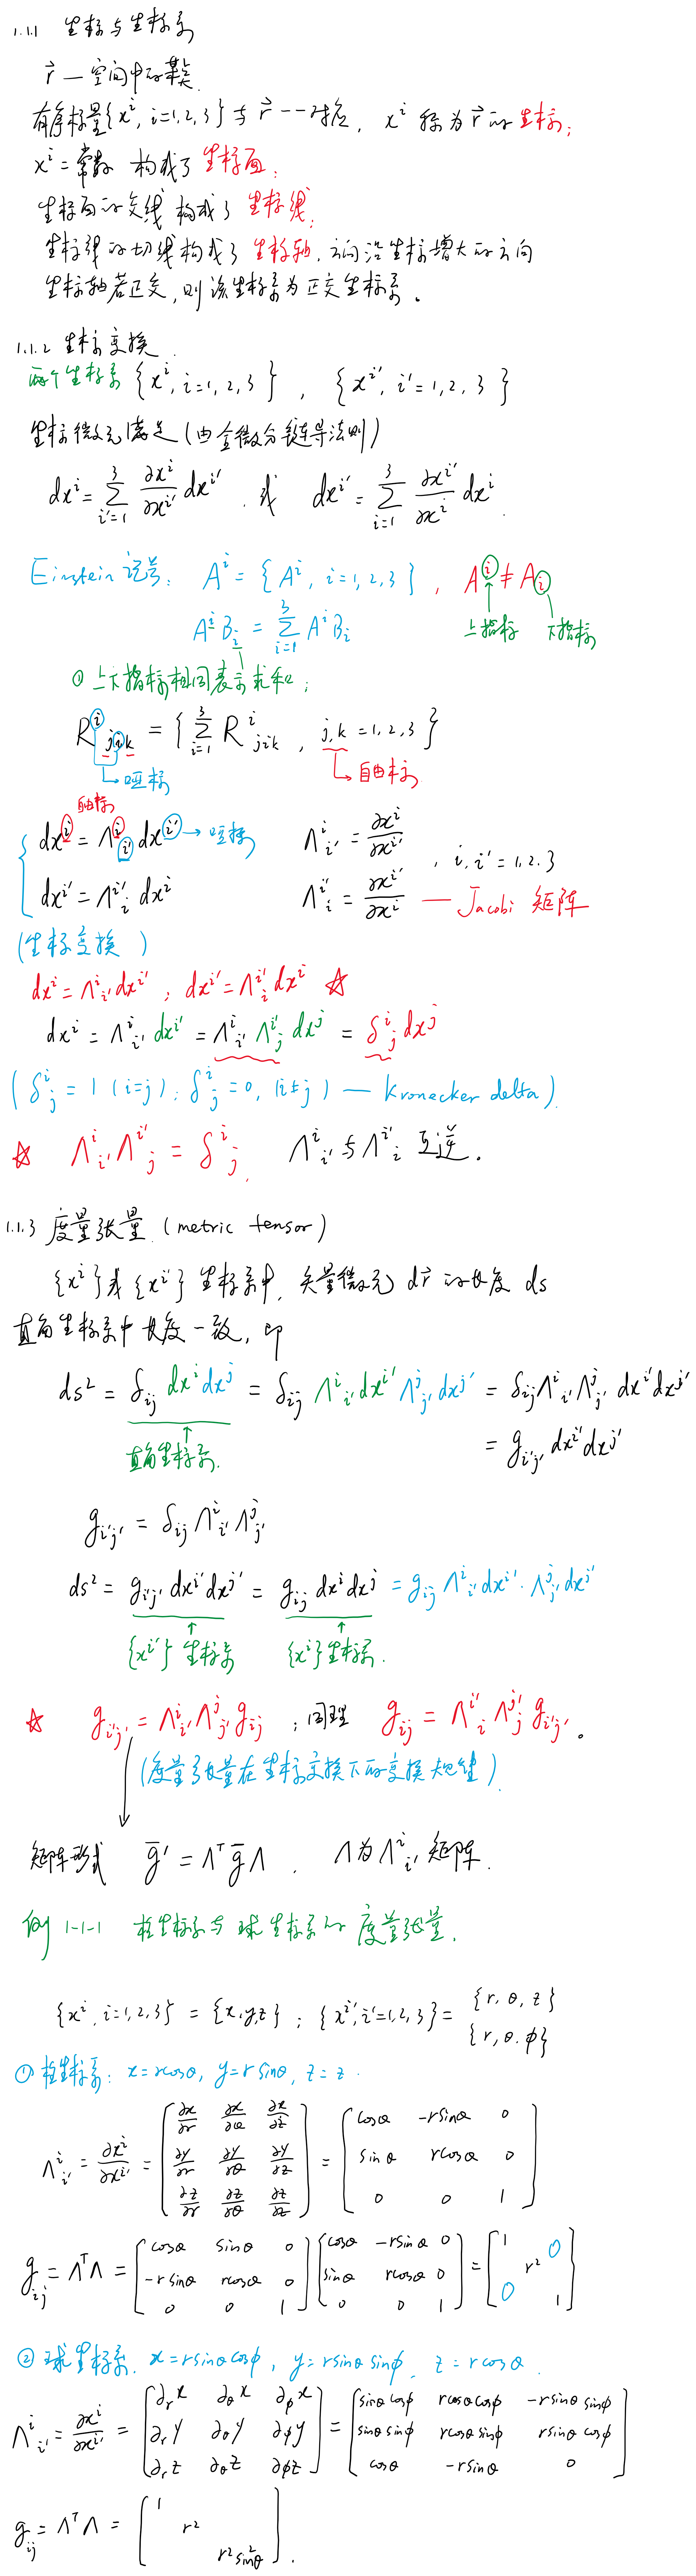 1.1.1 坐标与坐标系
r⃗ — 空间中的某点
有序标量{xⁱ, i=1,2,3}与 r⃗ 一一对应, xⁱ 称为 r⃗ 的坐标;
xⁱ = 常数 构成了坐标面;
坐标面的交线构成了坐标线;
坐标线的切线构成了坐标轴, 方向沿坐标增大的方向
坐标轴若正交, 则该坐标系为正交坐标系。
1.1.2 坐标变换
两个坐标系 {xⁱ, i=1,2,3} , {xⁱ', i'=1,2,3}
坐标微元满足(由全微分链导法则)
dxⁱ = Σ_{i'=1}^{3} ∂xⁱ/∂xⁱ' dxⁱ' , 或 dxⁱ' = Σ_{i=1}^{3} ∂xⁱ'/∂xⁱ dxⁱ .
Einstein 记号: Aⁱ = {Aⁱ, i=1,2,3} , Aⁱ ≠ A_i
上指标 下指标
Aⁱ B_i = Σ_{i=1}^{3} Aⁱ B_i
① 上下指标相同表示求和;
Rⁱ_{jik} = {Σ_{i=1}^{3} Rⁱ_{jik} , j,k = 1,2,3}
哑标 自由标
自由标
dxⁱ = Λⁱ_{i'} dxⁱ' → 哑标 Λⁱ_{i'} = ∂xⁱ/∂xⁱ' , i,i' = 1,2,3
dxⁱ' = Λⁱ'_i dxⁱ Λⁱ'_i = ∂xⁱ'/∂xⁱ — Jacobi 矩阵
(坐标变换 )
dxⁱ = Λⁱ_{i'} dxⁱ' ; dxⁱ' = Λⁱ'_i dxⁱ ☆
dxⁱ = Λⁱ_{i'} dxⁱ' = Λⁱ_{i'} Λⁱ'_j dxʲ = δⁱ_j dxʲ
(δⁱ_j = 1 (i=j); δⁱ_j = 0, (i≠j) — Kronecker delta).
☆ Λⁱ_{i'} Λⁱ'_j = δⁱ_j , Λⁱ_{i'} 与 Λⁱ'_i 互逆。
1.1.3 度量张量 (metric tensor)
{xⁱ} 或 {xⁱ'} 坐标系中, 矢量微元 dr⃗ 的长度 ds
直角坐标系中长度一致, 即
ds² = δ_{ij} dxⁱdxʲ = δ_{ij} Λⁱ_{i'} dxⁱ' Λʲ_{j'} dxʲ' = δ_{ij} Λⁱ_{i'} Λʲ_{j'} dxⁱ'dxʲ'
直角坐标系. = g_{i'j'} dxⁱ'dxʲ'
g_{i'j'} = δ_{ij} Λⁱ_{i'} Λʲ_{j'}
ds² = g_{i'j'} dxⁱ'dxʲ' = g_{ij} dxⁱdxʲ = g_{ij} Λⁱ_{i'} dxⁱ' · Λʲ_{j'} dxʲ'
{xⁱ'} 坐标系 {xⁱ} 坐标系.
☆ g_{i'j'} = Λⁱ_{i'} Λʲ_{j'} g_{ij} ; 同理 g_{ij} = Λⁱ'_i Λʲ'_j g_{i'j'} 。
(度量张量在坐标变换下的变换规律)
矩阵形式 ḡ' = Λᵀ ḡ Λ , Λ为 Λⁱ_{i'} 矩阵.
例 1-1-1 柱坐标系与球坐标系的度量张量.
{xⁱ, i=1,2,3} = {x,y,z} ; {xⁱ', i'=1,2,3} = {r, θ, z}
{r, θ, φ}
① 柱坐标系: x=rcosθ, y=rsinθ, z=z .
Λⁱ_{i'} = ∂xⁱ/∂xⁱ' = [∂x/∂r ∂x/∂θ ∂x/∂z; ∂y/∂r ∂y/∂θ ∂y/∂z; ∂z/∂r ∂z/∂θ ∂z/∂z] = [cosθ -rsinθ 0; sinθ rcosθ 0; 0 0 1]
g_{ij} = ΛᵀΛ = [cosθ sinθ 0; -rsinθ rcosθ 0; 0 0 1] [cosθ -rsinθ 0; sinθ rcosθ 0; 0 0 1] = [1 0; r²; 0 1]
② 球坐标系. x=rsinθcosφ, y=rsinθsinφ, z=rcosθ .
Λⁱ_{i'} = ∂xⁱ/∂xⁱ' = [∂_r x ∂_θ x ∂_φ x; ∂_r y ∂_θ y ∂_φ y; ∂_r z ∂_θ z ∂_φ z] = [sinθcosφ rcosθcosφ -rsinθsinφ; sinθsinφ rcosθsinφ rsinθcosφ; cosθ -rsinθ 0]
g_{ij} = ΛᵀΛ = [1; r²; r²sin²θ] .